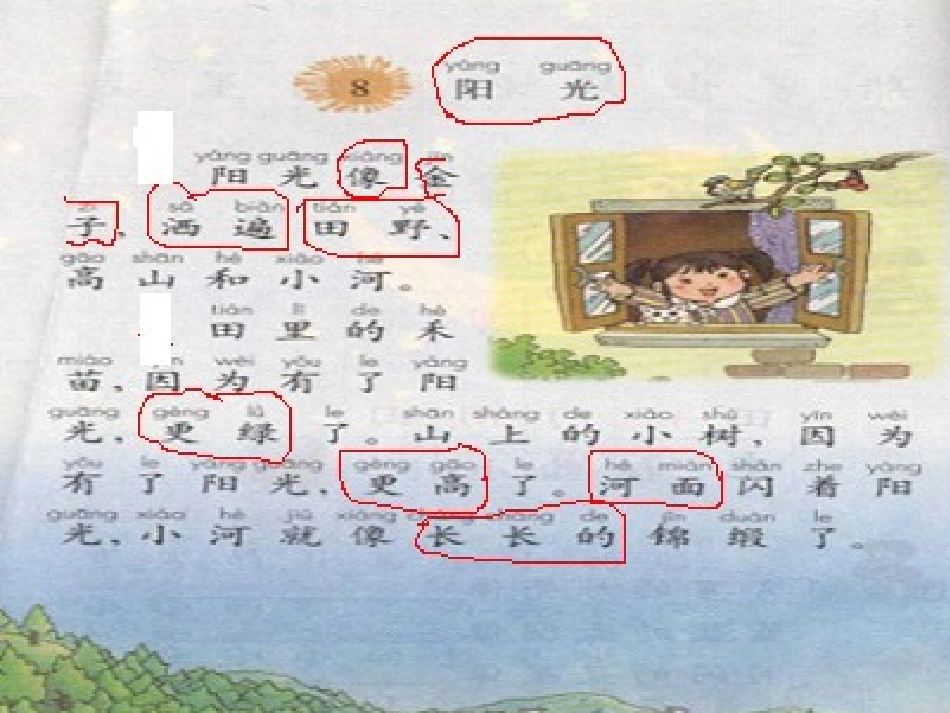 yáng guāng
8 阳 光
yáng guāng xiàng jīn
阳 光 像 金
zi sǎ biàn tián yě
子，洒 遍 田 野、
gāo shān hé xiǎo hé
高 山 和 小 河。
tián lǐ de hé
田 里 的 禾
miáo wèi yǒu le yáng
苗，因 为 有 了 阳
guāng gèng lǜ le shān shàng de xiǎo shù yīn wèi
光，更 绿 了。山 上 的 小 树，因 为
yǒu le yáng guāng gèng gāo le hé miàn shǎn zhe yáng
有 了 阳 光，更 高 了。河 面 闪 着 阳
guāng xiǎo hé jiù xiàng cháng cháng de jǐn duàn le
光，小 河 就 像 长 长 的 锦 缎 了。